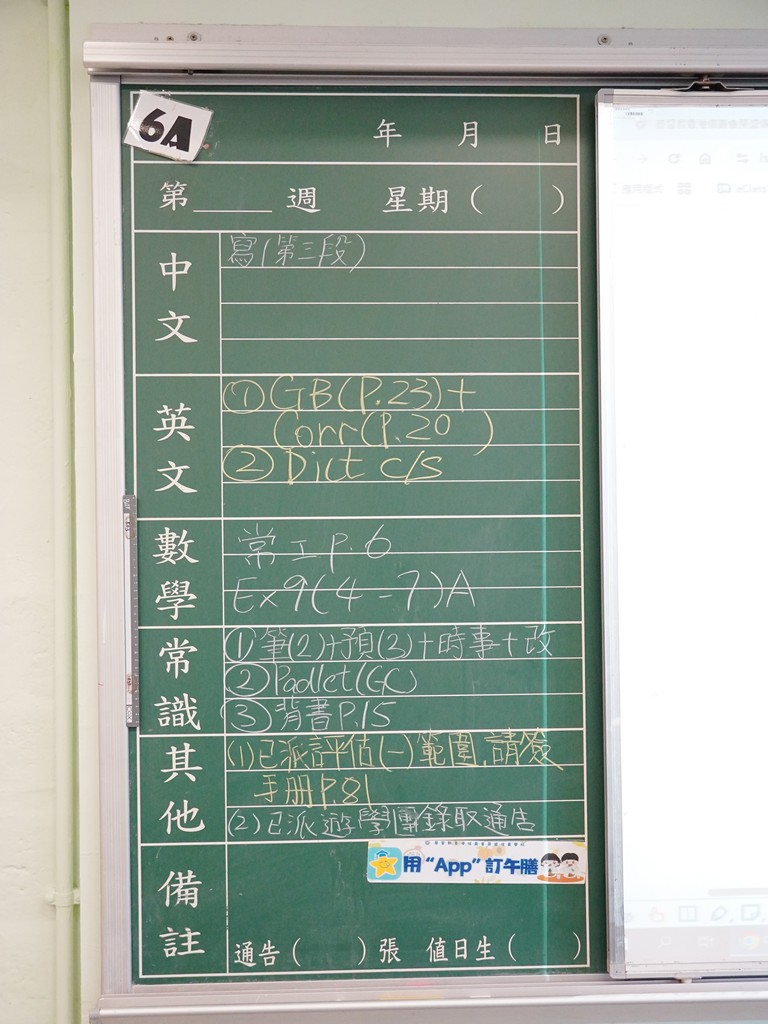 6A
年 月 日
第____ 週 星期( )
中文
寫(第三段)
英文
①GB(P.23)+
Corr(P.20 )
②Dict c/s
數學
常工 p.6
Ex9(4-7)A
常識
①筆(2)+預(3)+時事+改
②Padlet(GC)
③背書P.15
其他
(1)已派評估(一)範圍,請簽
手冊P.81
(2)已派遊學團錄取通告
備註
用“App”訂午膳
通告( )張 值日生( )
eClass